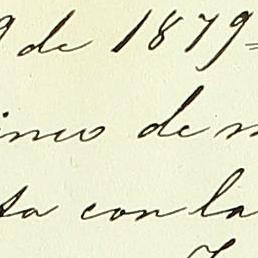 9 de 1879=
inco de m
ta con la